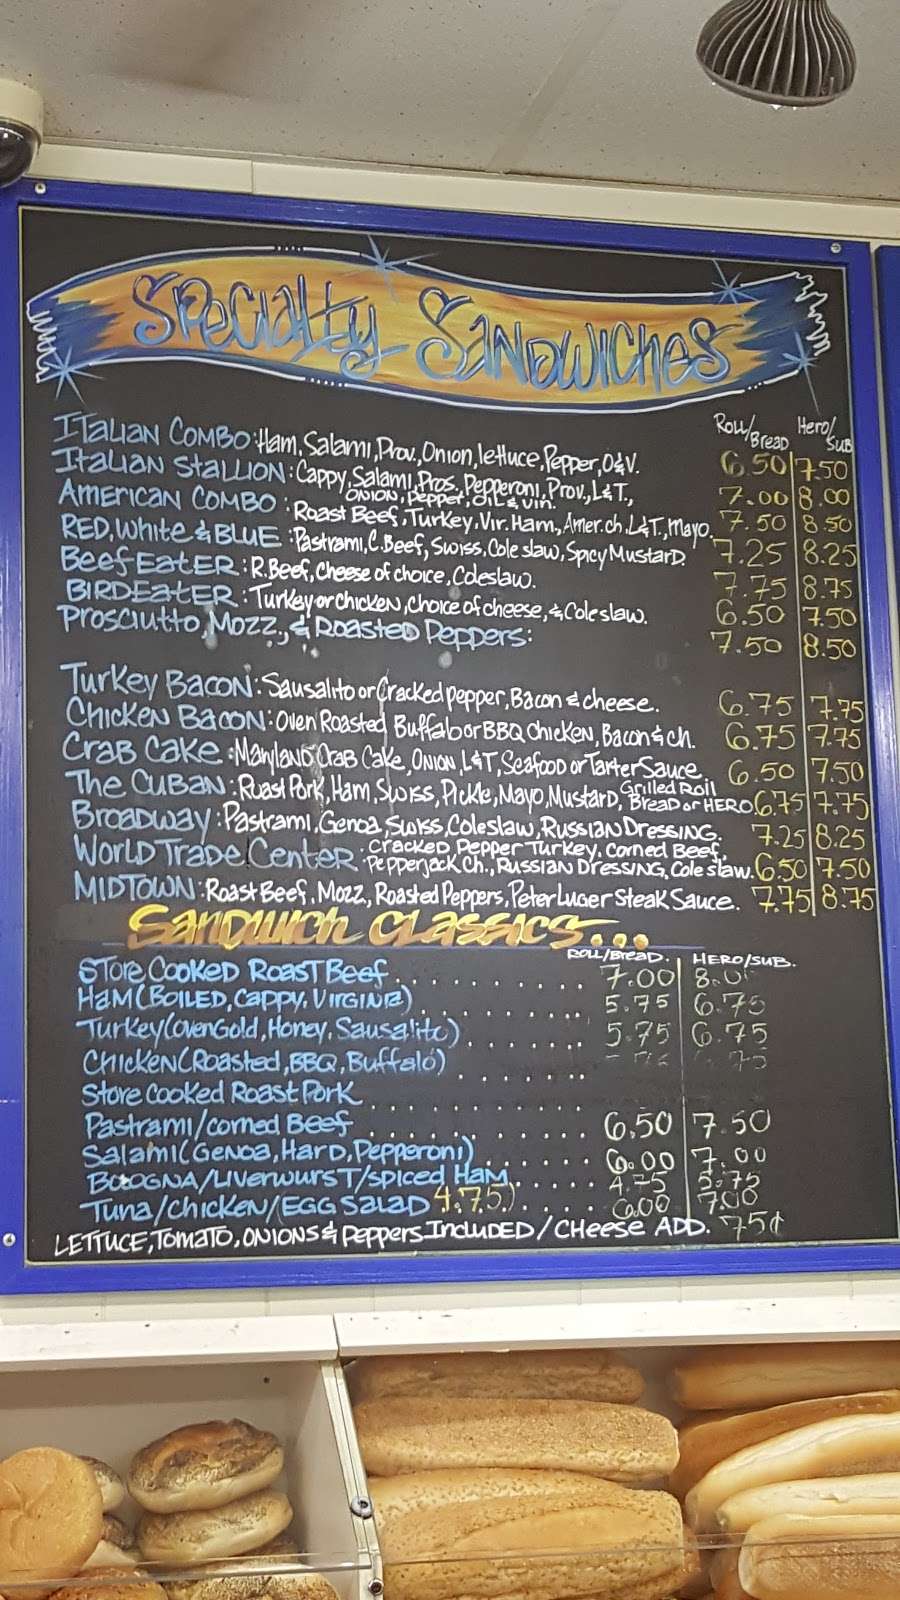 Specialty Sandwiches
Roll/Bread Hero/Sub
Italian Combo: Ham, Salami, Prov., Onion, lettuce, Pepper, O&V. 6.50 7.50
Italian Stallion: Cappy, Salami, Pros, Pepperoni, Prov., L&T., 7.00 8.00
Onion, Pepper, Oil & Vin.
American Combo: Roast Beef, Turkey, Vir. Ham, Amer. ch. L&T., Mayo. 7.50 8.50
Red, White & Blue: Pastrami, C. Beef, Swiss, Cole slaw, Spicy Mustard. 7.25 8.25
Beef Eater: R. Beef, Cheese of choice, Coleslaw. 7.75 8.75
Bird Eater: Turkey or Chicken, Choice of cheese, & Cole slaw. 6.50 7.50
Prosciutto, Mozz., & Roasted Peppers: 7.50 8.50
Turkey Bacon: Sausalito or Cracked pepper, Bacon & cheese. 6.75 7.75
Chicken Bacon: Oven Roasted Buffalo or BBQ Chicken, Bacon & ch. 6.75 7.75
Crab Cake: Maryland Crab Cake, Onion, L&T, Seafood or Tarter Sauce 6.50 7.50
The Cuban: Roast Pork, Ham, Swiss, Pickle, Mayo, Mustard, Grilled Roll Bread or Hero 6.75 7.75
Broadway: Pastrami, Genoa, Swiss, Coleslaw, Russian Dressing. 7.25 8.25
World Trade Center: Cracked Pepper Turkey, Corned Beef,
Pepperjack Ch., Russian Dressing, Cole slaw. 6.50 7.50
Midtown: Roast Beef, Mozz, Roasted Peppers, Peter Luger Steak Sauce. 7.75 8.75
Sandwich Classics...
Roll/Bread. Hero/Sub.
Store Cooked Roast Beef.......... 7.00 8.0
Ham (Boiled, Cappy, Virginia)........ 5.75 6.75
Turkey (Oven Gold, Honey, Sausalito)....... 5.75 6.75
Chicken (Roasted, BBQ, Buffalo)......
Store Cooked Roast Pork..........
Pastrami/Corned Beef.......... 6.50 7.50
Salami (Genoa, Hard, Pepperoni)...... 6.00 7.00
Bologna/Liverwurst/Spiced Ham..... 4.75 5.75
Tuna/Chicken/Egg Salad 4.75)..... 6.00 7.00
Lettuce, Tomato, Onions & Peppers Included / Cheese Add. 75¢